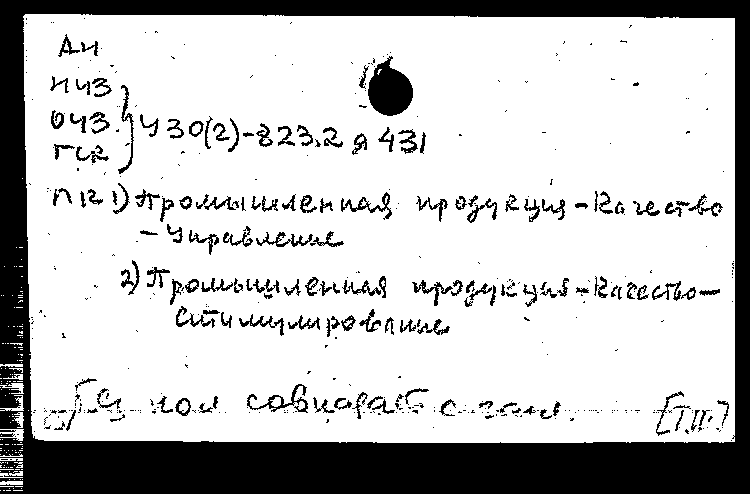 АН
НЧЗ
ОЧЗ } У30(2)-823.2 я 431
ГСК
ПК 1) Промышленная продукция - Качество
- Управление
2) Промышленная продукция - Качество -
Стимулирование
Без кол совпадает с загл. [Т.П.]